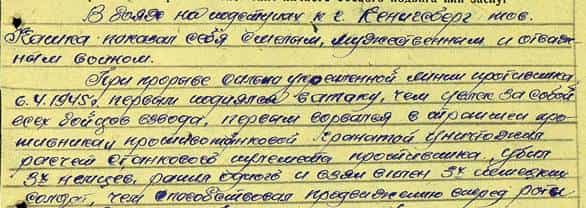 В боях на подступах к г. Кенигсберг тов.
Кашка показал себя смелым, мужественным и отваж-
ным воином.
При прорыве сильно укрепленной линии противника
6.4.1945г. первым поднялся в атаку, чем увлек за собой
всех бойцов взвода, первым ворвался в траншеи про-
тивника, противотанковой гранатой уничтожил
расчет станкового пулемета противника, убил
3х немцев, ранил одного и взял в плен 3х немецких
солдат, чем способствовал продвижению вперед роты